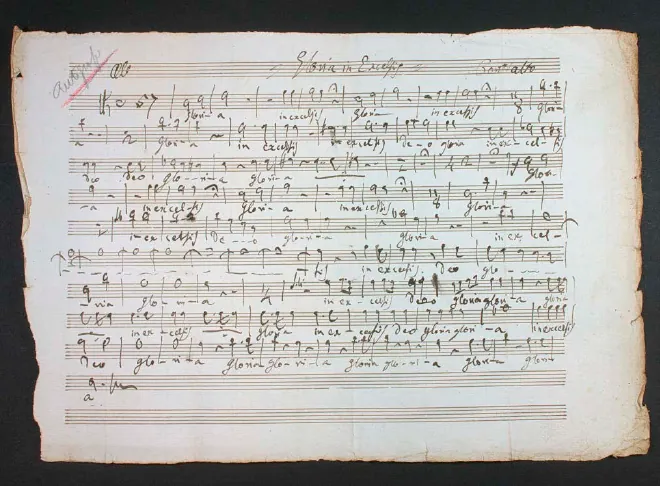 Gloria in Excelsis
Glori-a in excelsis Gloria in excelsis Gloria
a Glori-a in excelsis in excelsis de-o gloria in ex-cel-sis
deo deo glo--ri-a gloria Glori-
-a in excel-sis Glori-a in excelsis Glori-a
in ex celsis De--o glo-ri-a glori-a in ex cel-
sis in excelsis deo glo---
-ria glo-ri-a in ex-celsis deo Gloria glori-a
in ex-celsis gloria in ex-celsis deo gloria glori-a in excelsis
deo glo-ri-a Gloria glo-ri-a gloria glo-ri-a glori-a glori
a